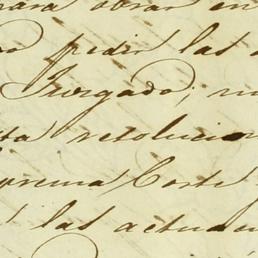 para obrar en
pedir las
Juzgado; m
ta resolucion
prema Corte
las actua